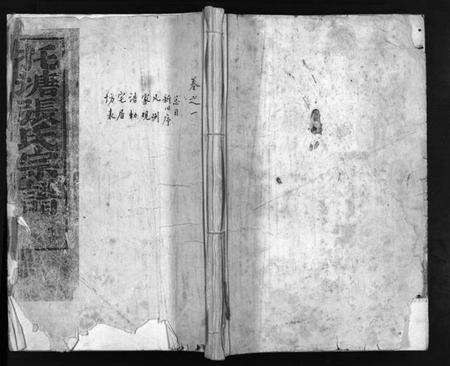 卷之一
总目
新旧序
凡例
家规
诰勅
宅居
坊表
托塘張氏宗譜